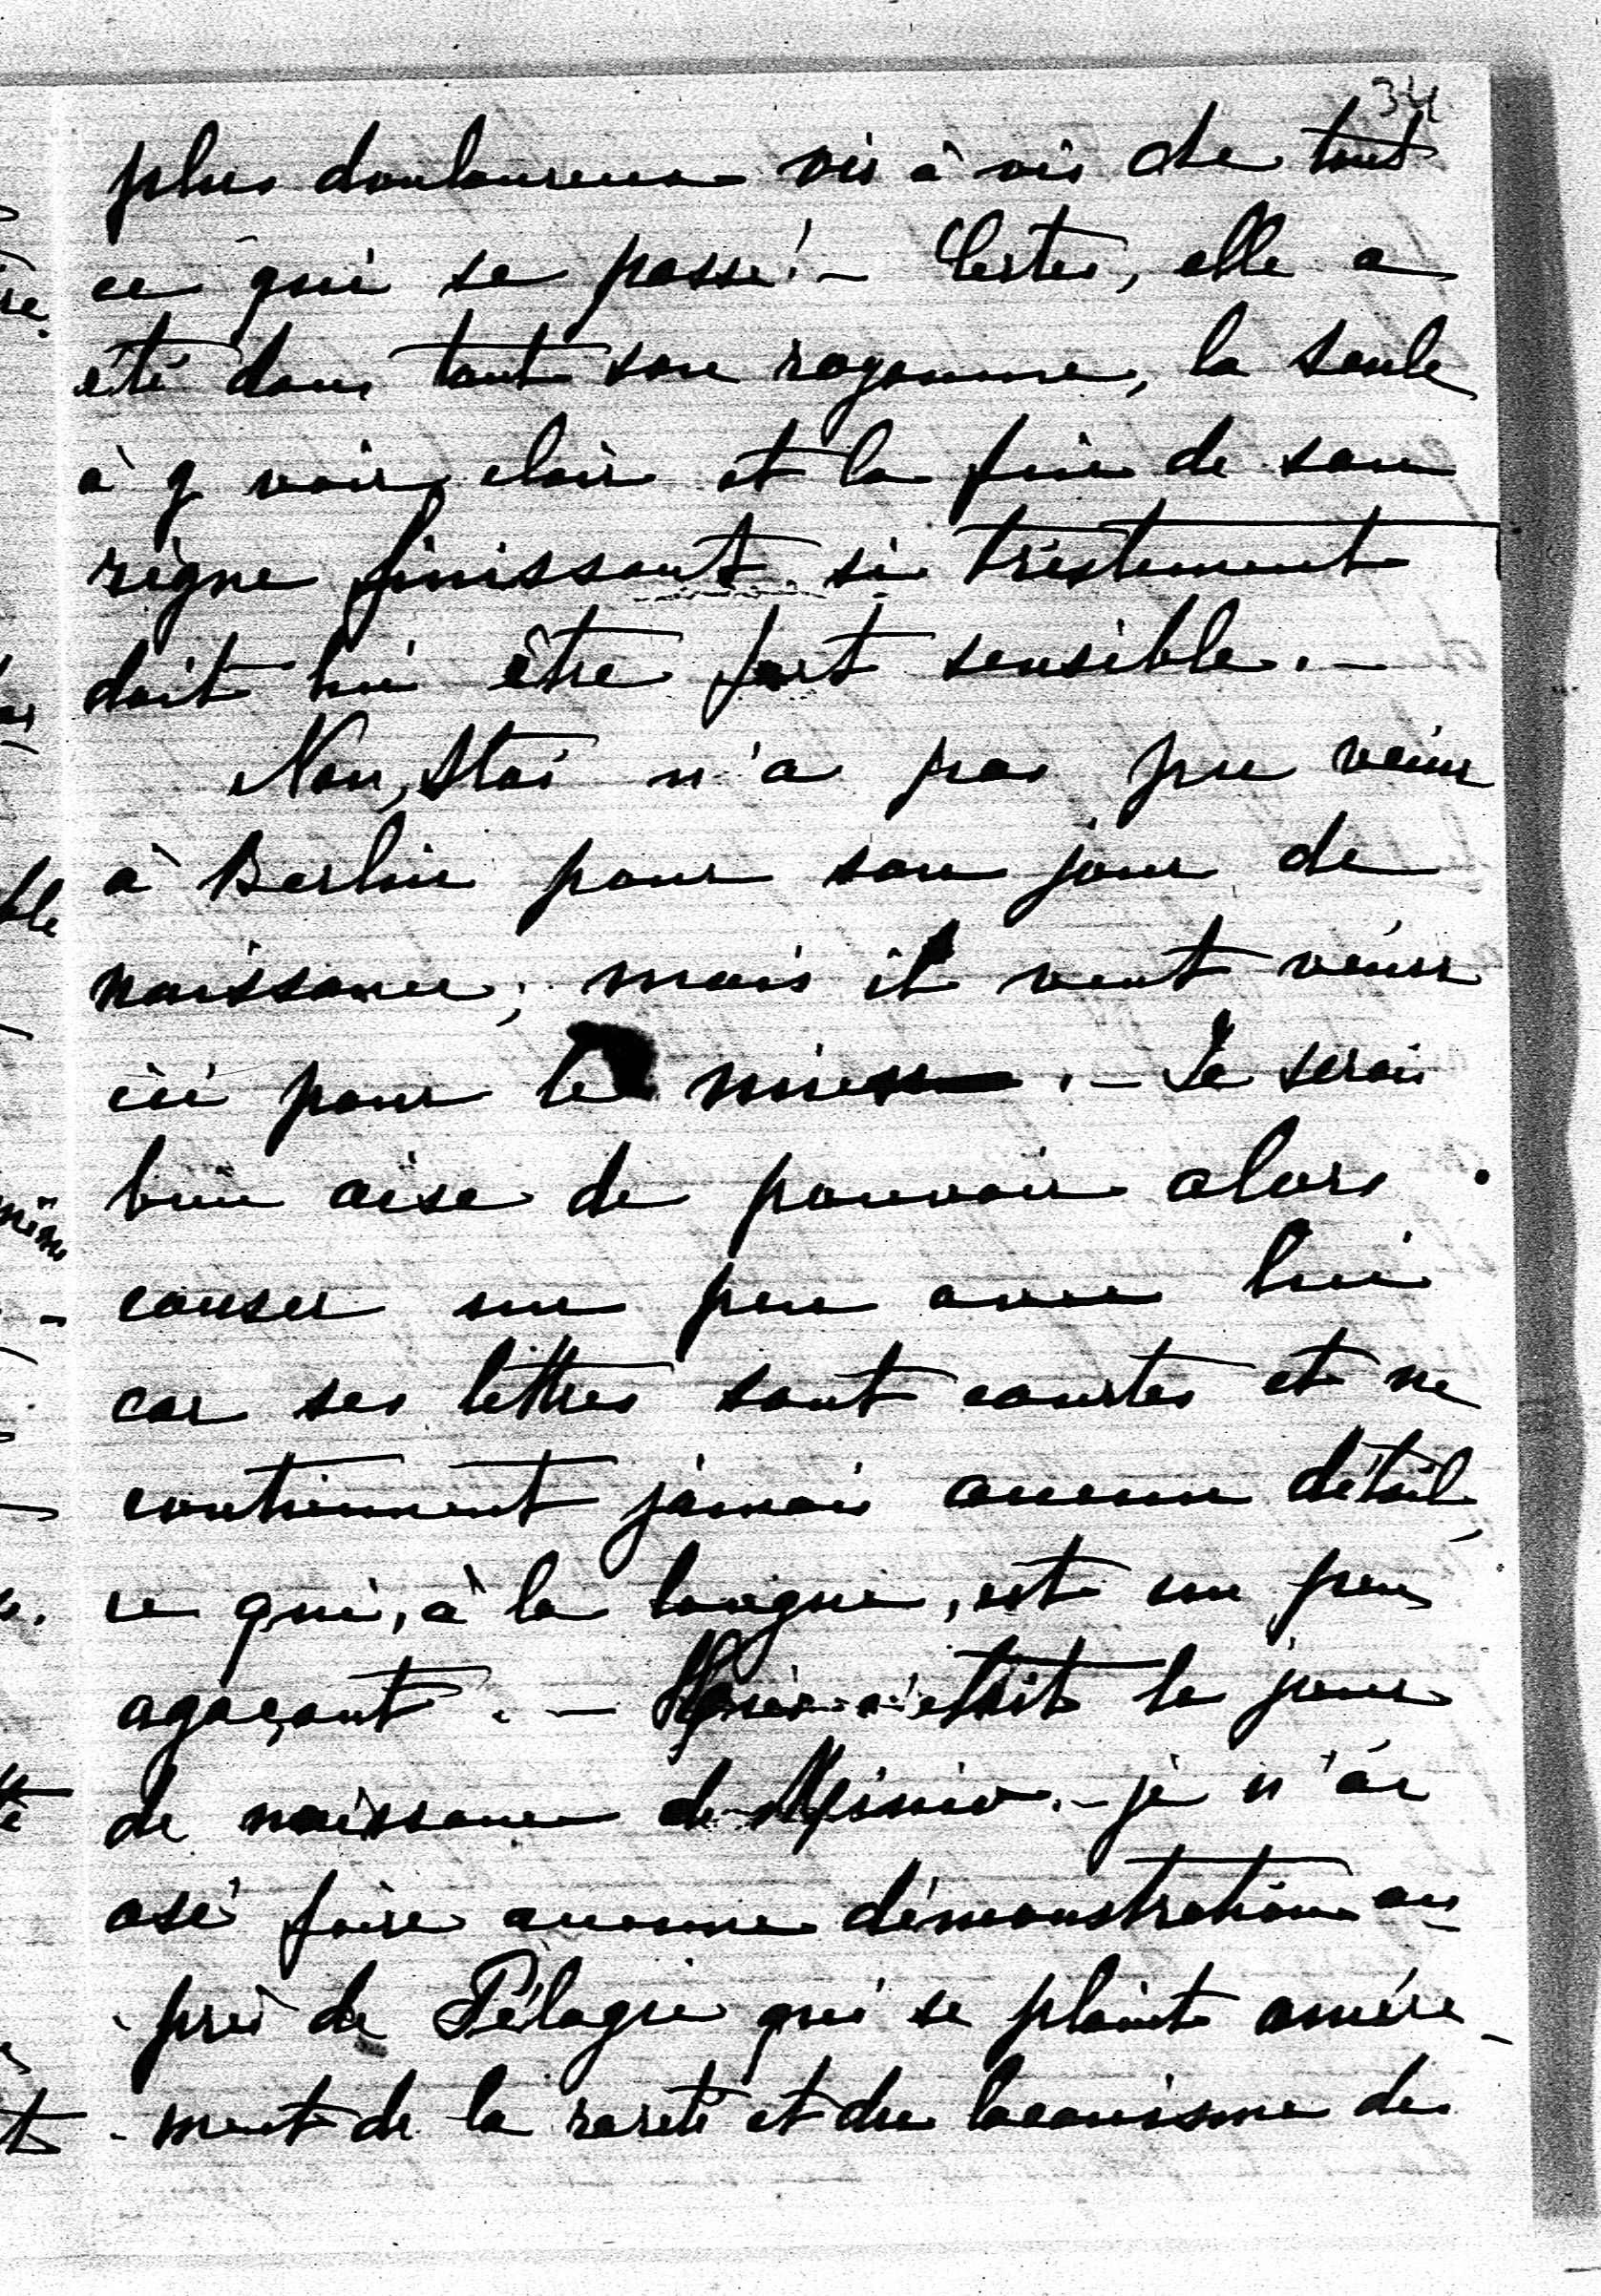 34
plus douloureux vis à vis de tout
ce qui se passe! – Certes, elle a
été dans tout son royaume, la seule
à y voir clair et la fin de son
règne finissant si tristement
doit lui être fort sensible. –
Non, Stas n'a pas pu venir
à Berlin pour son jour de
naissance; mais il veut venir
ici pour le mien. – Je serais
bien aise de pouvoir alors
causer un peu avec lui
car ses lettres sont courtes et ne
contiennent jamais aucun détail,
ce qui, à la longue, est un peu
agaçant. – Hier c'était le jour
de naissance de – je n'ai
osé faire aucune démonstration au-
près de Pélagie qui se plaint amère-
ment de la rareté et du laconisme de